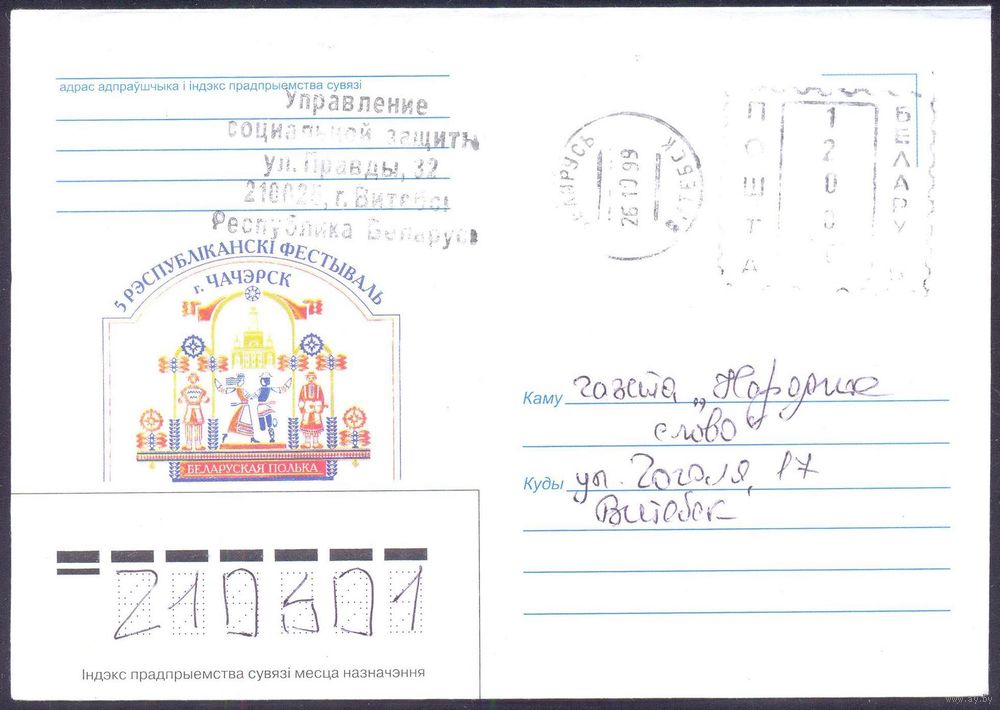 адрас адпраўшчыка і індэкс прадпрыемства сувязі
Управление
социальной защиты
ул. Правды, 32
г. Витебск
Республика Беларусь
5 РЭСПУБЛІКАНСКІ ФЕСТЫВАЛЬ
г. ЧАЧЭРСК
БЕЛАРУСКАЯ ПОЛЬКА
26 10 99
ПОШТА
БЕЛАРУСЬ
Каму газета „Народнае
слово"
Куды ул. Гоголя, 17
Витебск
Індэкс прадпрыемства сувязі месца назначэння
www.ay.by